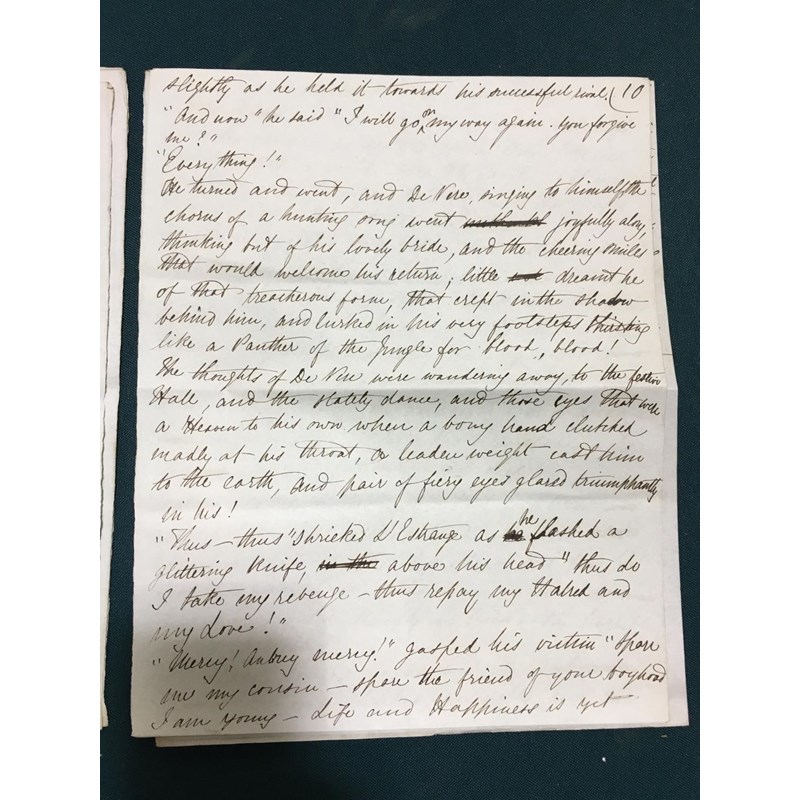 slightly as he held it towards his successful rival. (10
"And now" he said "I will go on my way again. You forgive
me?"
"Everything!"
He turned and went, and De Vere, singing to himself the
chorus of a hunting song went joyfully along,
thinking but of his lovely bride, and the cheering smiles
that would welcome his return; little dreamt he
of that treacherous form, that crept in the shadow
behind him, and lurked in his very footsteps thirsting
like a Panther of the Jungle for blood, blood!
The thoughts of De Vere were wandering away, to the festive
Hall, and the stately dance, and those eyes that were
a Heaven to his own when a bony hand clutched
madly at his throat, a leaden weight cast him
to the earth, and pair of fiery eyes glared triumphantly
in his!
"Thus - thus" shrieked D'Estrange as he flashed a
glittering knife, above his head "thus do
I take my revenge - thus repay my Hatred and
my Love!"
"Mercy! Aubrey mercy!" gasped his victim "spare
me my cousin - spare the friend of your boyhood
I am young - Life and Happiness is yet